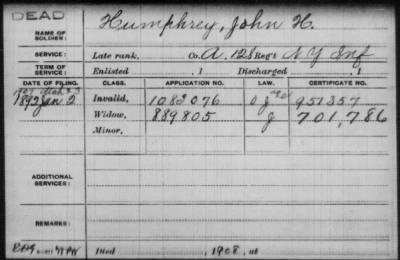 DEAD
NAME OF SOLDIER: Humphrey, John H.
SERVICE: Late rank, Co. A, 128 Reg't N.Y. Inf
TERM OF SERVICE: Enlisted , 1 Discharged , 1
DATE OF FILING. CLASS. APPLICATION NO. LAW. CERTIFICATE NO.
1907
1892 Jan 2 Invalid, 1083076 951357
Widow, 889805 701,786
Minor,
ADDITIONAL SERVICES:
REMARKS:
Died , 1908, at